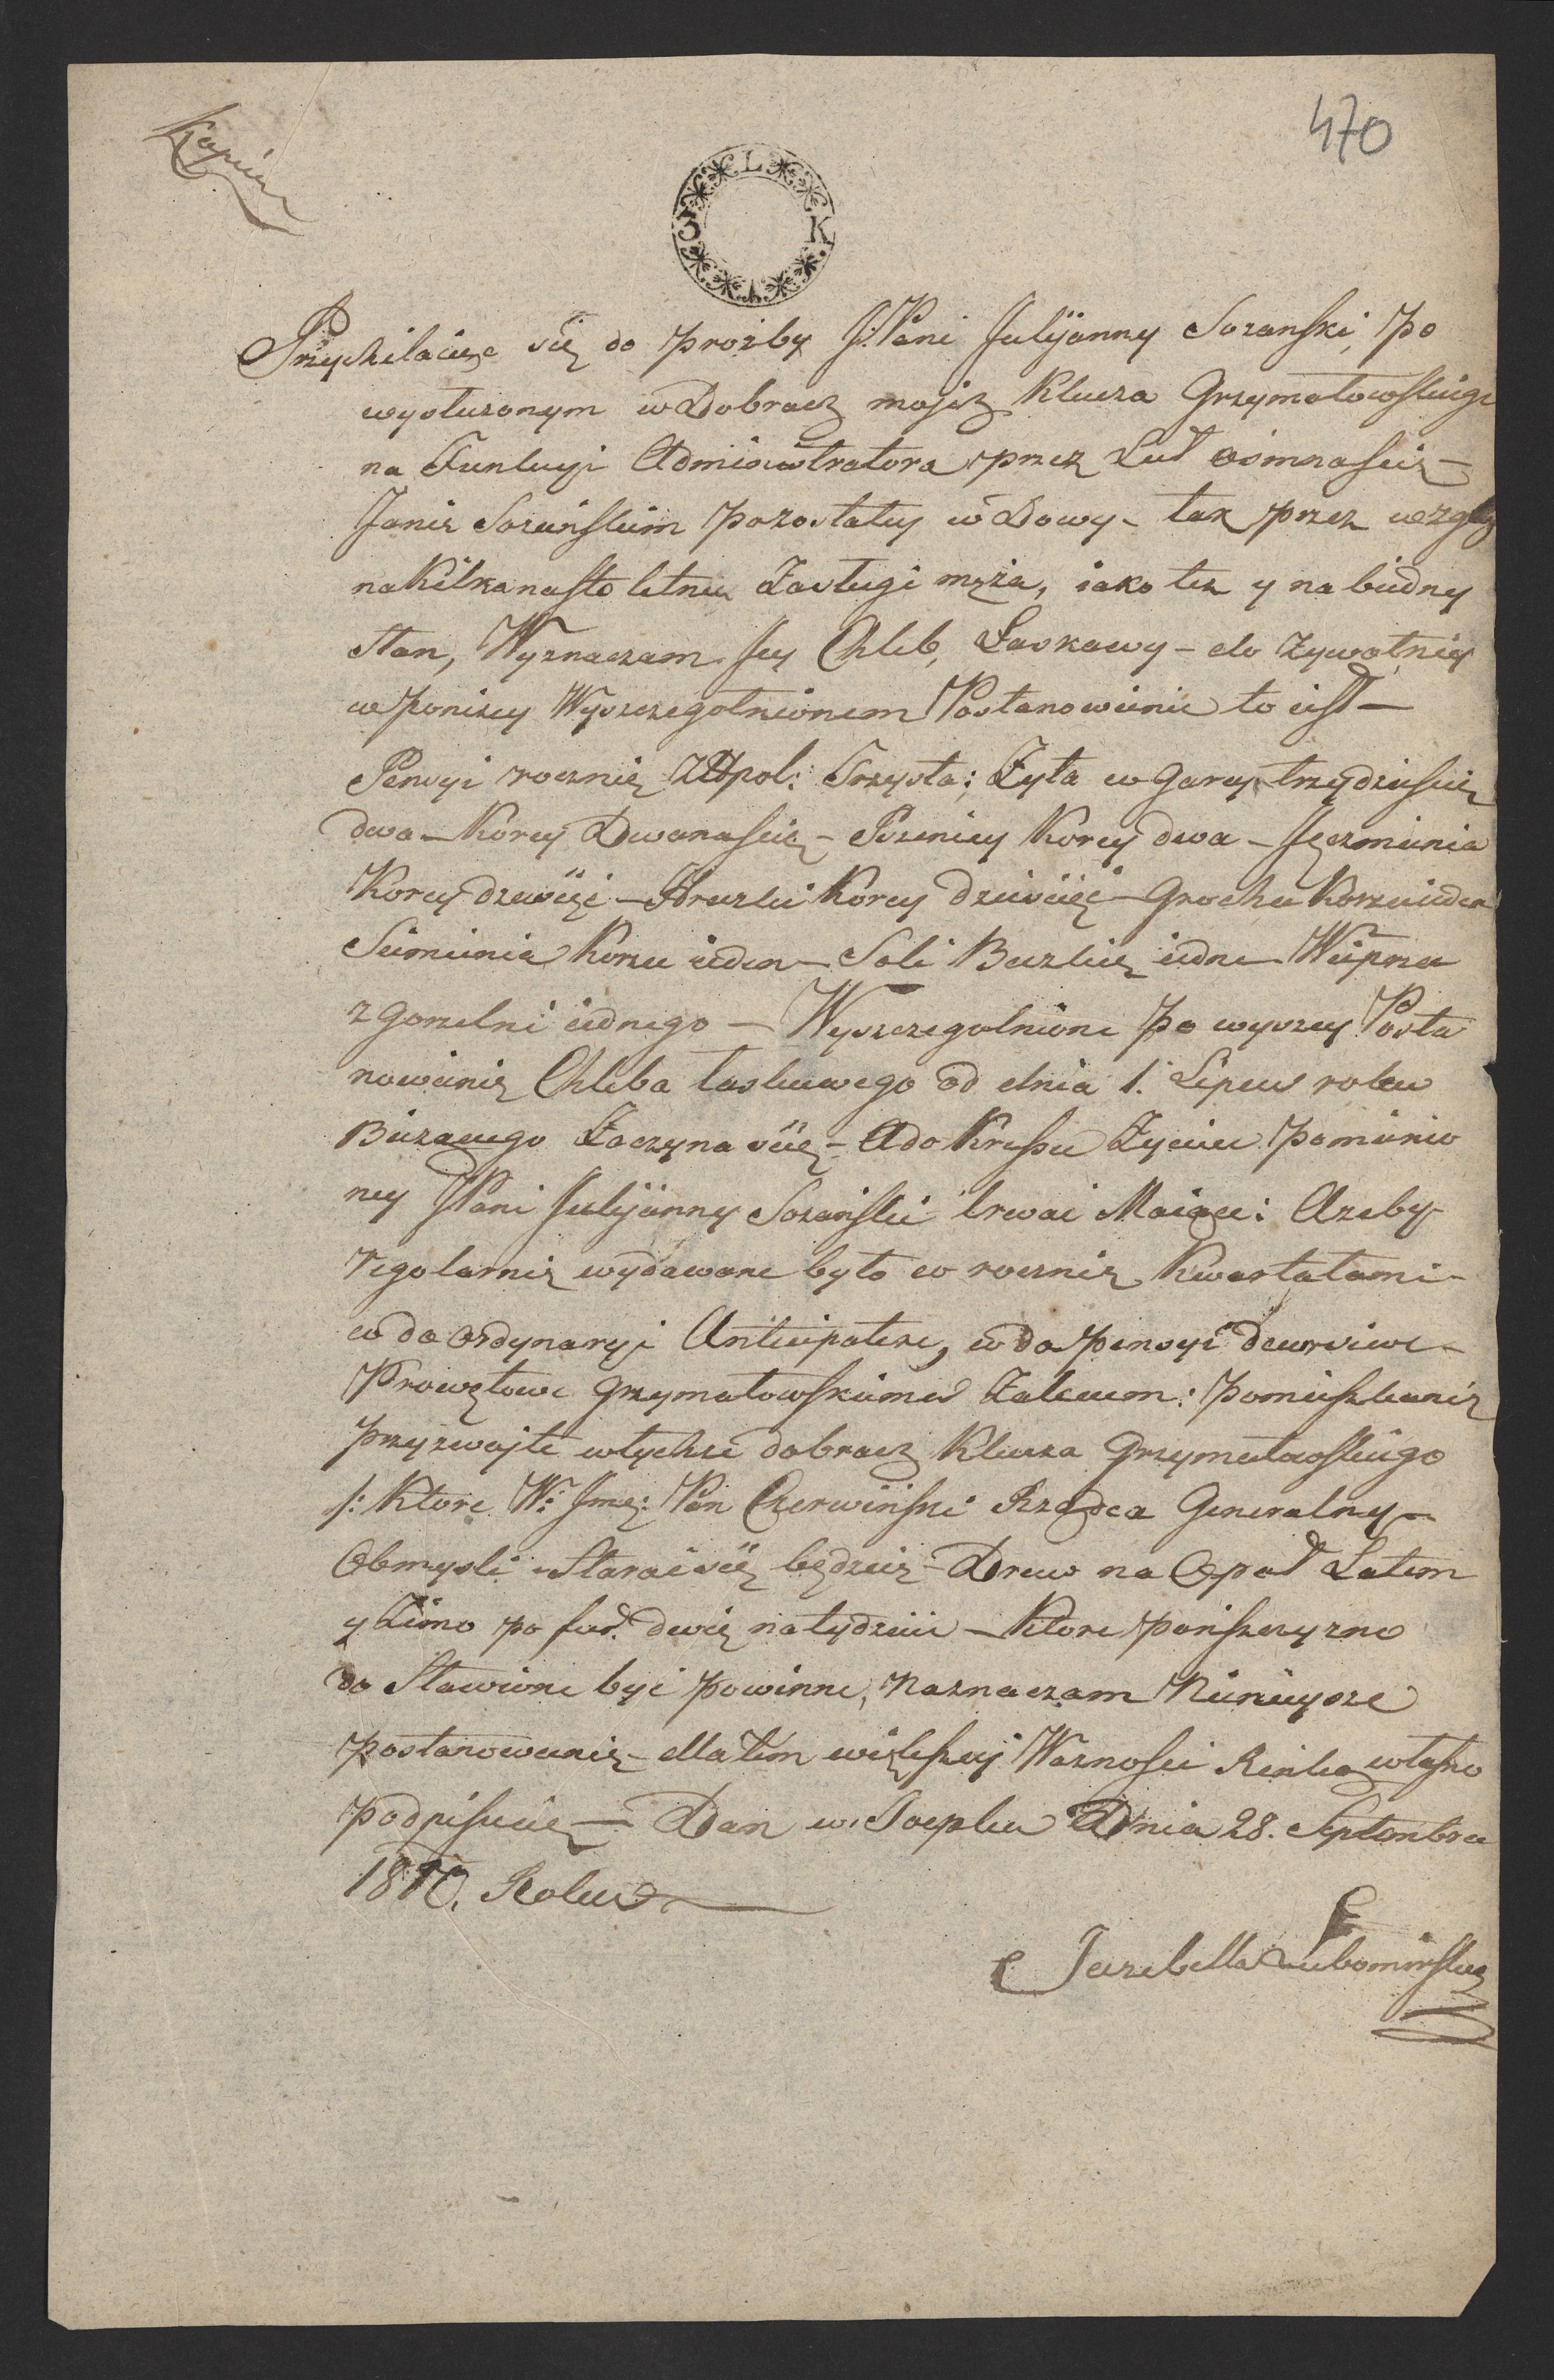 Kopia
470
L
3 K
Przychilaiąc się do prozby J: Pani Julijanny Sozanski, po
wysłuzonym w Dobracz mojcz Klucza Grzymałowskiego
na Funkcyi Administratora przez Lat osimnascie –
Janie Sozańskim pozostałey w Dowy – tak przez wzglą
na kilkanasto letnie Zasługi męża, iako tez y na biedny
Stan, Wyznaczam Jey Chleb, Łaskawy – do zywotnie
w ponizey Wyszczegolnionem Postanowienie to iest –
Pensyi rocznie Złłpol: Trzysta; Żyta w Garcy trzydziescie
dwa – Korcy Dwanascie – Pszenicy Korcy dwa – Jęczmienia
Korcy dziewięć – Hreczki Korcy dziewięć – Grochu Korzec ieden
Siemienia Korzec ieden – Soli Beczkie iedne – Wieprza
z gorzelni iednego – Wyszczegolnione po wyszey Posta
nowienie Chleba łaskawego od dnia 1. Lipca roku
Bieżącego Zaczyna się – A do Kresu Życia pomienio
ney JPani Julijanny Sozański trwać Maiące: Azeby
regolarnie wydawane było w rocznie Kwartałami –
w do ordynaryi Anticipatese, w do pensyi
Prowętowe Grzymałowskiemu Zalecam: pomieszkanie
przyzwojte w tychze dobracz Klucza Grzymałowskiego
/: Ktore W: Jmę: Pan Czerwiński Rządca Generalny –
Obmysli Starać się będzie – Drew na Opał Latem
y Zimo po fur. dwie na tydzień – Ktore pańszczyzno
do Stawione być powinne, naznaczam Ninieysze
postanowienie – dla tem większej Waznosci Rienko własno
podpisuie – Dan w Dnia 28. Septembra
1810. Roku
Jezabella Lubomirska